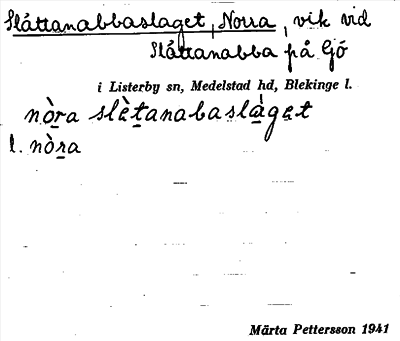 Slåttanabbaslaget, Norra, vik vid
Slåttanabba på Gö
i Listerby sn, Medelstad hd, Blekinge l.
nòra slètanabaslàget
l. nòra
Märta Pettersson 1941